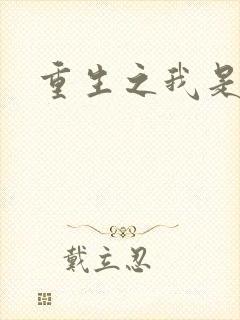 重生之我是
戴立忍